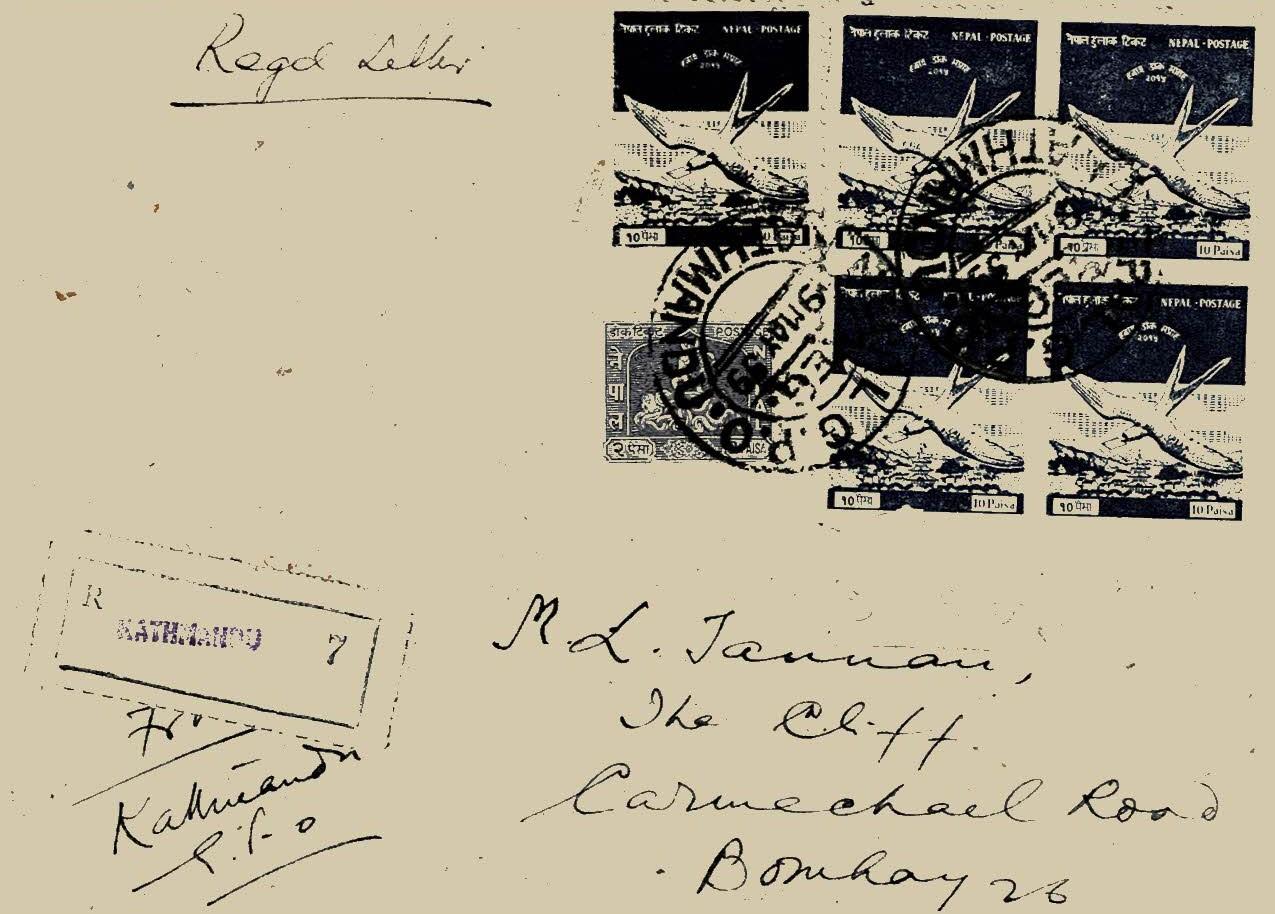 Regd Letter
नेपाल हुलाक टिकट NEPAL - POSTAGE
हवाई डाक प्रसार
२०१५
१० पैसा
नेपाल हुलाक टिकट NEPAL - POSTAGE
हवाई डाक प्रसार
२०१५
१० पैसा Paisa
नेपाल हुलाक टिकट NEPAL - POSTAGE
हवाई डाक प्रसार
२०१५
१० पैसा 10 Paisa
KATHMANDU
G.P.O.
NEPAL - POSTAGE
१० पैसा 10 Paisa
नेपाल हुलाक टिकट NEPAL - POSTAGE
२०१५
१० पैसा 10 Paisa
डाक टिकट POSTAGE
नेपाल
२ पैसा PAISA
KATHMANDU
9 MAY 59
G.P.O.
R
KATHMANDU 7
Fr.
Kathmandu
G.P.O
M. L. Tannan,
The Cliff.
Carmechael Road
Bombay 26